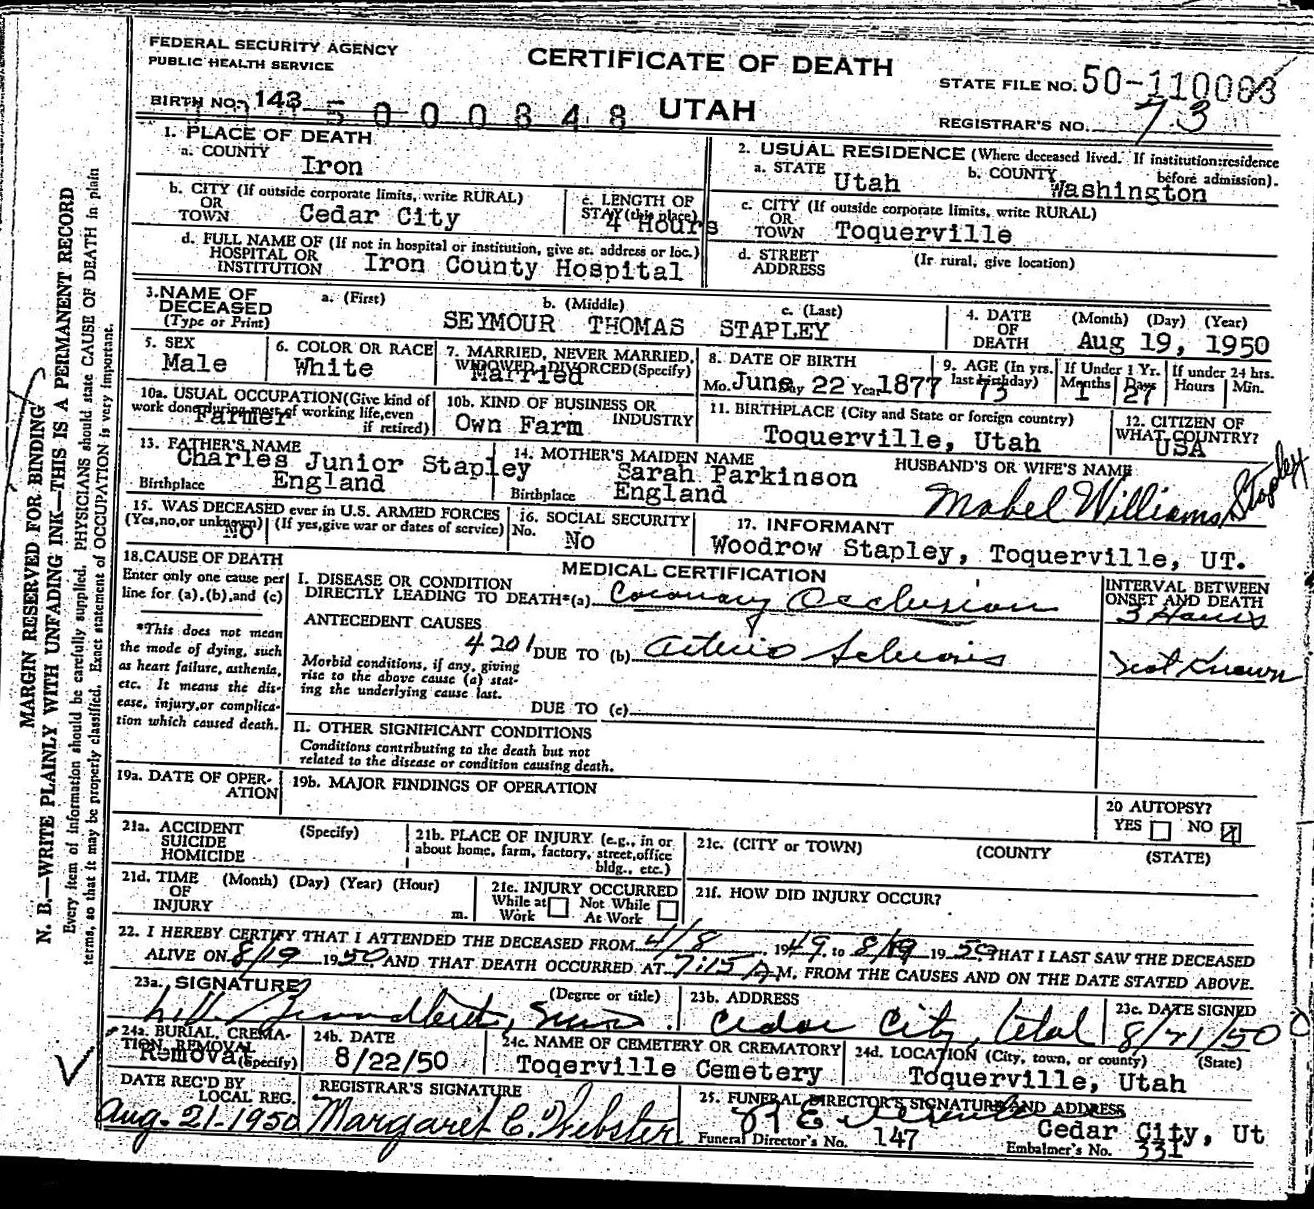 FEDERAL SECURITY AGENCY
PUBLIC HEALTH SERVICE
CERTIFICATE OF DEATH
UTAH
STATE FILE NO. 50-110083
BIRTH NO. 143
5000848
REGISTRAR'S NO. 73
1. PLACE OF DEATH
a. COUNTY Iron
b. CITY (If outside corporate limits, write RURAL) OR TOWN Cedar City
c. LENGTH OF STAY (this place) 4 Hours
d. FULL NAME OF (If not in hospital or institution, give st. address or loc.) HOSPITAL OR INSTITUTION Iron County Hospital
2. USUAL RESIDENCE (Where deceased lived. If institution: residence before admission).
a. STATE Utah b. COUNTY Washington
c. CITY (If outside corporate limits, write RURAL) OR TOWN Toquerville
d. STREET ADDRESS (If rural, give location)
3. NAME OF DECEASED (Type or Print) a. (First) b. (Middle) c. (Last)
SEYMOUR THOMAS STAPLEY
4. DATE OF DEATH (Month) (Day) (Year)
Aug 19, 1950
5. SEX Male
6. COLOR OR RACE White
7. MARRIED, NEVER MARRIED, WIDOWED, DIVORCED (Specify) Married
8. DATE OF BIRTH Mo. June Day 22 Year 1877
9. AGE (In yrs. last birthday) 73
If Under 1 Yr. Months 1 Days 27
If under 24 hrs. Hours Min.
10a. USUAL OCCUPATION (Give kind of work done during most of working life, even if retired) Farmer
10b. KIND OF BUSINESS OR INDUSTRY Own Farm
11. BIRTHPLACE (City and State or foreign country) Toquerville, Utah
12. CITIZEN OF WHAT COUNTRY? USA
13. FATHER'S NAME Charles Junior Stapley
Birthplace England
14. MOTHER'S MAIDEN NAME Sarah Parkinson
Birthplace England
HUSBAND'S OR WIFE'S NAME
Mabel Williams Stapley
15. WAS DECEASED ever in U.S. ARMED FORCES (Yes, no, or unknown) (If yes, give war or dates of service) No
16. SOCIAL SECURITY No. No
17. INFORMANT
Woodrow Stapley, Toquerville, UT.
18. CAUSE OF DEATH
Enter only one cause per line for (a), (b), and (c)
*This does not mean the mode of dying, such as heart failure, asthenia, etc. It means the disease, injury, or complication which caused death.
MEDICAL CERTIFICATION
I. DISEASE OR CONDITION
DIRECTLY LEADING TO DEATH*(a) Coronary Occlusion
INTERVAL BETWEEN ONSET AND DEATH
3 Hours
ANTECEDENT CAUSES
4201 DUE TO (b) Arterio Sclerosis
Not Known
Morbid conditions, if any, giving rise to the above cause (a) stating the underlying cause last.
DUE TO (c)
II. OTHER SIGNIFICANT CONDITIONS
Conditions contributing to the death but not related to the disease or condition causing death.
19a. DATE OF OPERATION
19b. MAJOR FINDINGS OF OPERATION
20 AUTOPSY?
YES NO X
21a. ACCIDENT SUICIDE HOMICIDE (Specify)
21b. PLACE OF INJURY (e.g., in or about home, farm, factory, street, office bldg., etc.)
21c. (CITY OR TOWN) (COUNTY (STATE)
21d. TIME OF INJURY (Month) (Day) (Year) (Hour) m.
21e. INJURY OCCURRED
While at Work Not While At Work
21f. HOW DID INJURY OCCUR?
22. I HEREBY CERTIFY THAT I ATTENDED THE DECEASED FROM 4/8 1949, to 8/19 1950 THAT I LAST SAW THE DECEASED
ALIVE ON 8/19 1950, AND THAT DEATH OCCURRED AT 7:15 A M. FROM THE CAUSES AND ON THE DATE STATED ABOVE.
23a. SIGNATURE (Degree or title)
23b. ADDRESS
Cedar City, Utah
23c. DATE SIGNED
8/21/50
24a. BURIAL, CREMATION, REMOVAL (Specify) Removal
24b. DATE 8/22/50
24c. NAME OF CEMETERY OR CREMATORY
Toqerville Cemetery
24d. LOCATION (City, town, or county) (State)
Toquerville, Utah
DATE REC'D BY LOCAL REG.
Aug. 21-1950
REGISTRAR'S SIGNATURE
Margaret C. Webster
25. FUNERAL DIRECTOR'S SIGNATURE AND ADDRESS
Cedar City, Ut
Funeral Director's No. 147
Embalmer's No. 331
MARGIN RESERVED FOR BINDING
N. B.—WRITE PLAINLY WITH UNFADING INK—THIS IS A PERMANENT RECORD
Every item of information should be carefully supplied. PHYSICIANS should state CAUSE OF DEATH in plain
terms, so that it may be properly classified. Exact statement of OCCUPATION is very important.